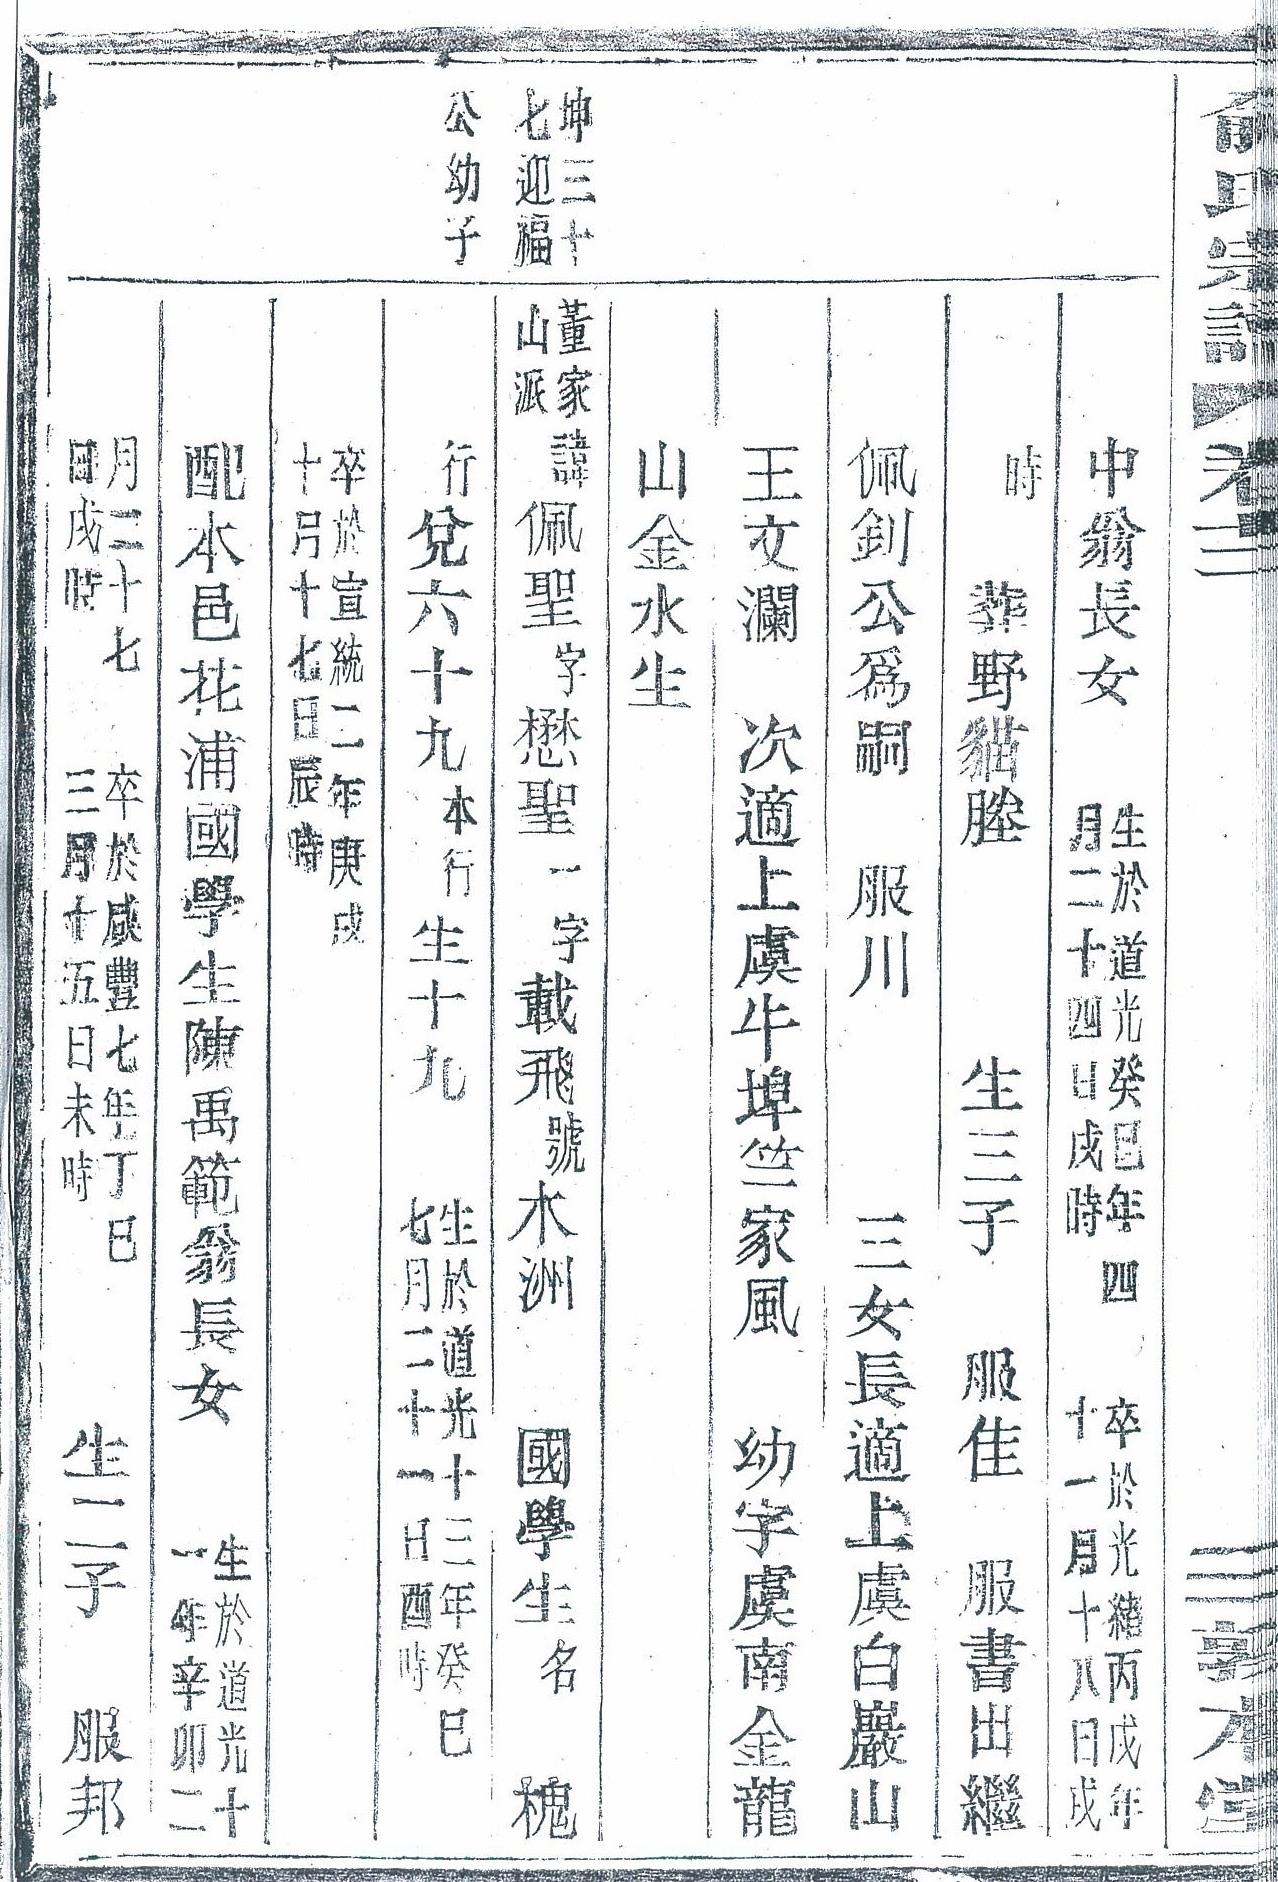 俞氏宗譜 卷三 敦本堂
中翁長女 生於道光癸巳年四
月二十四日戌時 卒於光緒丙戌年
十一月十八日戌
時 葬野貓塍 生三子 服佳 服書出繼
佩釗公爲嗣 服川 三女長適上虞白巖山
王文瀾 次適上虞牛埠竺家風 幼字虞南金龍
山金水生
坤三十
七迎福
公幼子
董家
山派
諱佩聖字懋聖一字載飛號木洲 國學生名槐
行兌六十九本行生十九 生於道光十三年癸巳
七月二十一日酉時
卒於宣統二年庚戌
十月十七日辰時
配本邑花浦國學生陳禹範翁長女 生於道光十
一年辛卯二
月二十七
日戌時 卒於咸豐七年丁巳
三月十五日未時 生二子 服邦